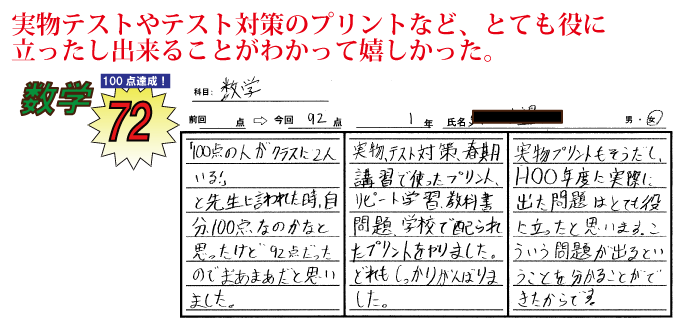 実物テストやテスト対策のプリントなど、とても役に
立ったし出来ることがわかって嬉しかった。
数学
100点達成！
72
科目: 数学
前回 点 ⇨ 今回 92 点 1 年 氏名 男・女
「100点の人がクラスに2人
いる」
と先生に言われた時、自
分、100点なのかなと
思ったけど92点だった
のでまあまあだと思い
ました。
実物、テスト対策、春期
講習で使ったプリント、
リピート学習、教科書
問題、学校で配られ
たプリントをやりました。
どれもしっかりがんばりま
した。
実物プリントもそうだし、
H〇〇年度に実際に
出た問題はとても役
に立ったと思います。こ
ういう問題が出るとい
うことを分かることがで
きたからです。